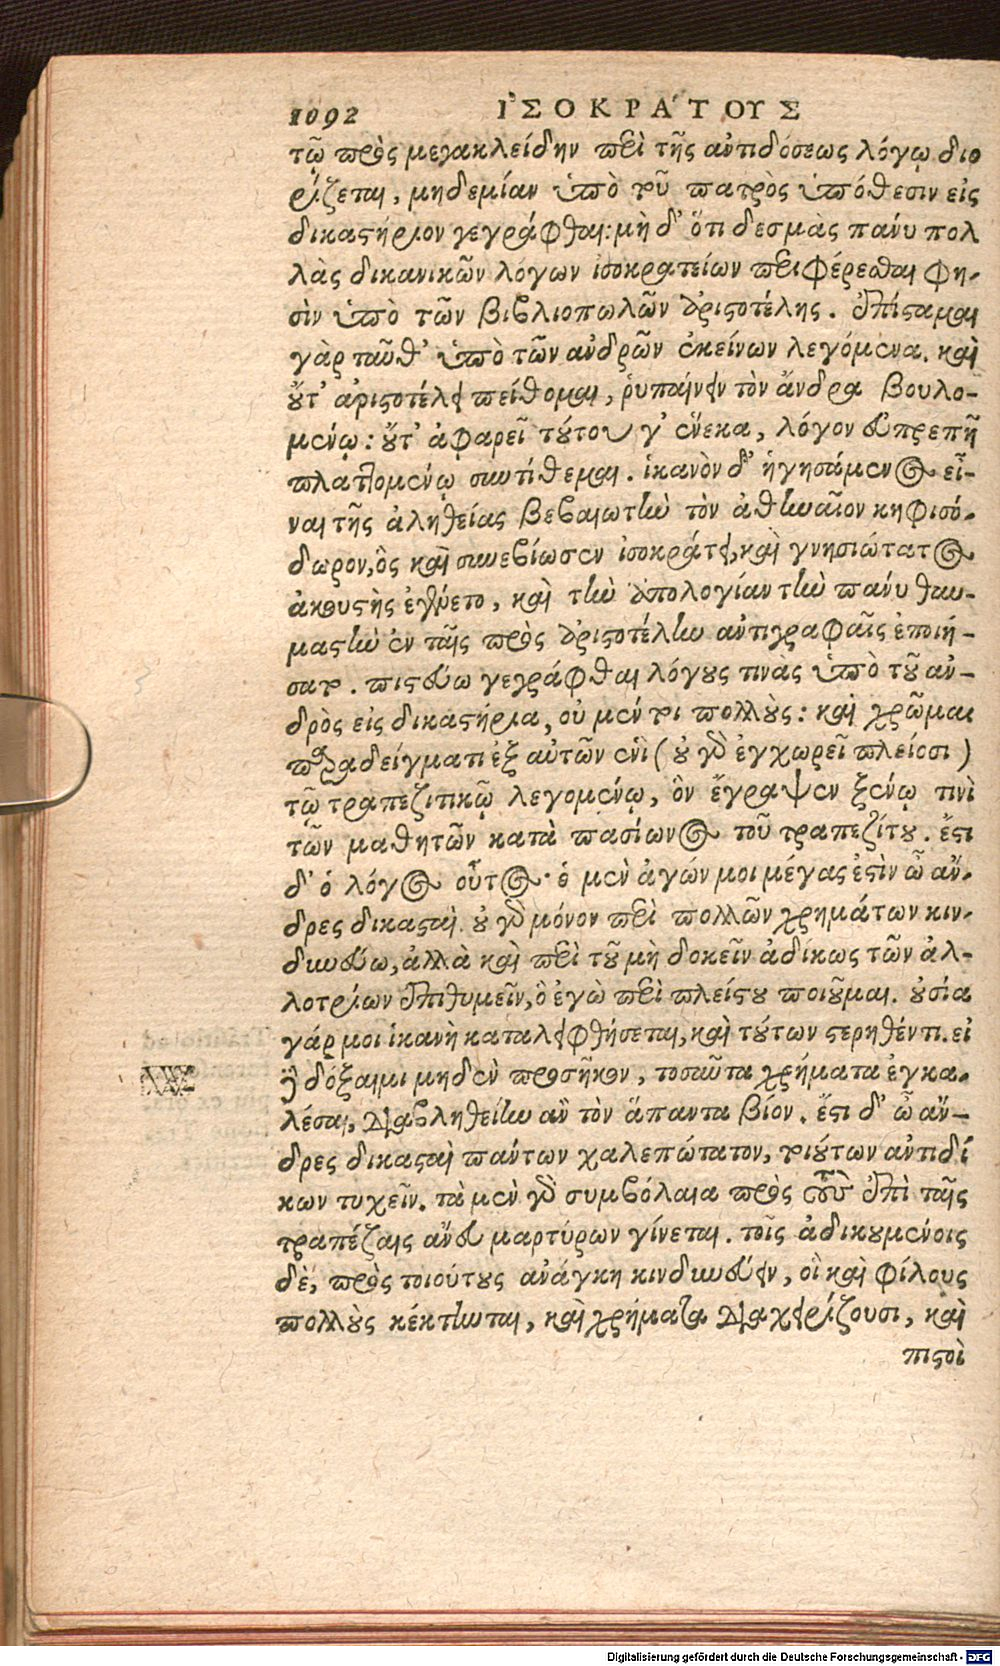 1092 ἸΣΟΚΡΆΤΟΥΣ
τῷ πρὸς μεγακλείδην περὶ τῆς ἀντιδόσεως λόγῳ διο
ρίζεται, μηδεμίαν ὑπὸ τοῦ πατρὸς ὑπόθεσιν εἰς
δικαστήριον γεγράφθαι: μὴ δ' ὅτι δεσμὰς πάνυ πολ
λὰς δικανικῶν λόγων ἰσοκρατείων περιφέρεσθαι φη-
σὶν ὑπὸ τῶν βιβλιοπωλῶν ἀριστοτέλης. ἐπίσταμαι
γὰρ ταῦθ' ὑπὸ τῶν ἀνδρῶν ἐκείνων λεγόμενα. καὶ
οὔτ' ἀριστοτέλει πείθομαι, ῥυπαίνειν τὸν ἄνδρα βουλο-
μένῳ: οὔτ' ἀφαρεῖ τούτου γ' ἕνεκα, λόγον εὐπρεπῆ
πλαττομένῳ συντίθεμαι. ἱκανὸν δ' ἡγησάμενος εἶ-
ναι τῆς ἀληθείας βεβαιωτὴν τὸν ἀθηναῖον κηφισό-
δωρον, ὃς καὶ συνεβίωσεν ἰσοκράτει, καὶ γνησιώτατος
ἀκουστὴς ἐγένετο, καὶ τὴν ἀπολογίαν τὴν πάνυ θαυ-
μαστὴν ἐν ταῖς πρὸς ἀριστοτέλην ἀντιγραφαῖς ἐποιή-
σατο. πιστεύω γεγράφθαι λόγους τινὰς ὑπὸ τοῦ ἀν-
δρὸς εἰς δικαστήρια, οὐ μέν τοι πολλοὺς: καὶ χρῶμαι
παραδείγματι ἐξ αὐτῶν ἑνὶ (οὐ γὰρ ἐγχωρεῖ πλείοσι)
τῷ τραπεζιτικῷ λεγομένῳ, ὃν ἔγραψεν ξένῳ τινὶ
τῶν μαθητῶν κατὰ πασίωνος τοῦ τραπεζίτου. ἔστι
δ' ὁ λόγος οὗτος· ὁ μὲν ἀγών μοι μέγας ἐστὶν ὦ ἄν-
δρες δικασταὶ. οὐ γὰρ μόνον περὶ πολλῶν χρημάτων κιν-
δυνεύω, ἀλλὰ καὶ περὶ τοῦ μὴ δοκεῖν ἀδίκως τῶν ἀλ-
λοτρίων ἐπιθυμεῖν, ὃ ἐγὼ περὶ πλείστου ποιοῦμαι. οὐσία
γάρ μοι ἱκανὴ καταλειφθήσεται, καὶ τούτων στερηθέντι. εἰ
δὲ δόξαιμι μηδὲν προσῆκον, τοσαῦτα χρήματα ἐγκα-
λέσαι, διαβληθείην ἂν τὸν ἅπαντα βίον. ἔστι δ' ὦ ἄν-
δρες δικασταὶ πάντων χαλεπώτατον, τοιούτων ἀντιδί
κων τυχεῖν. τὰ μὲν γὰρ συμβόλαια πρὸς τοὺς ἐπὶ ταῖς
τραπέζαις ἄνευ μαρτύρων γίνεται. τοῖς ἀδικουμένοις
δὲ, πρὸς τοιούτους ἀνάγκη κινδυνεύειν, οἳ καὶ φίλους
πολλοὺς κέκτηνται, καὶ χρήματα διαχειρίζουσι, καὶ
πιστοὶ
Digitalisierung gefördert durch die Deutsche Forschungsgemeinschaft - DFG